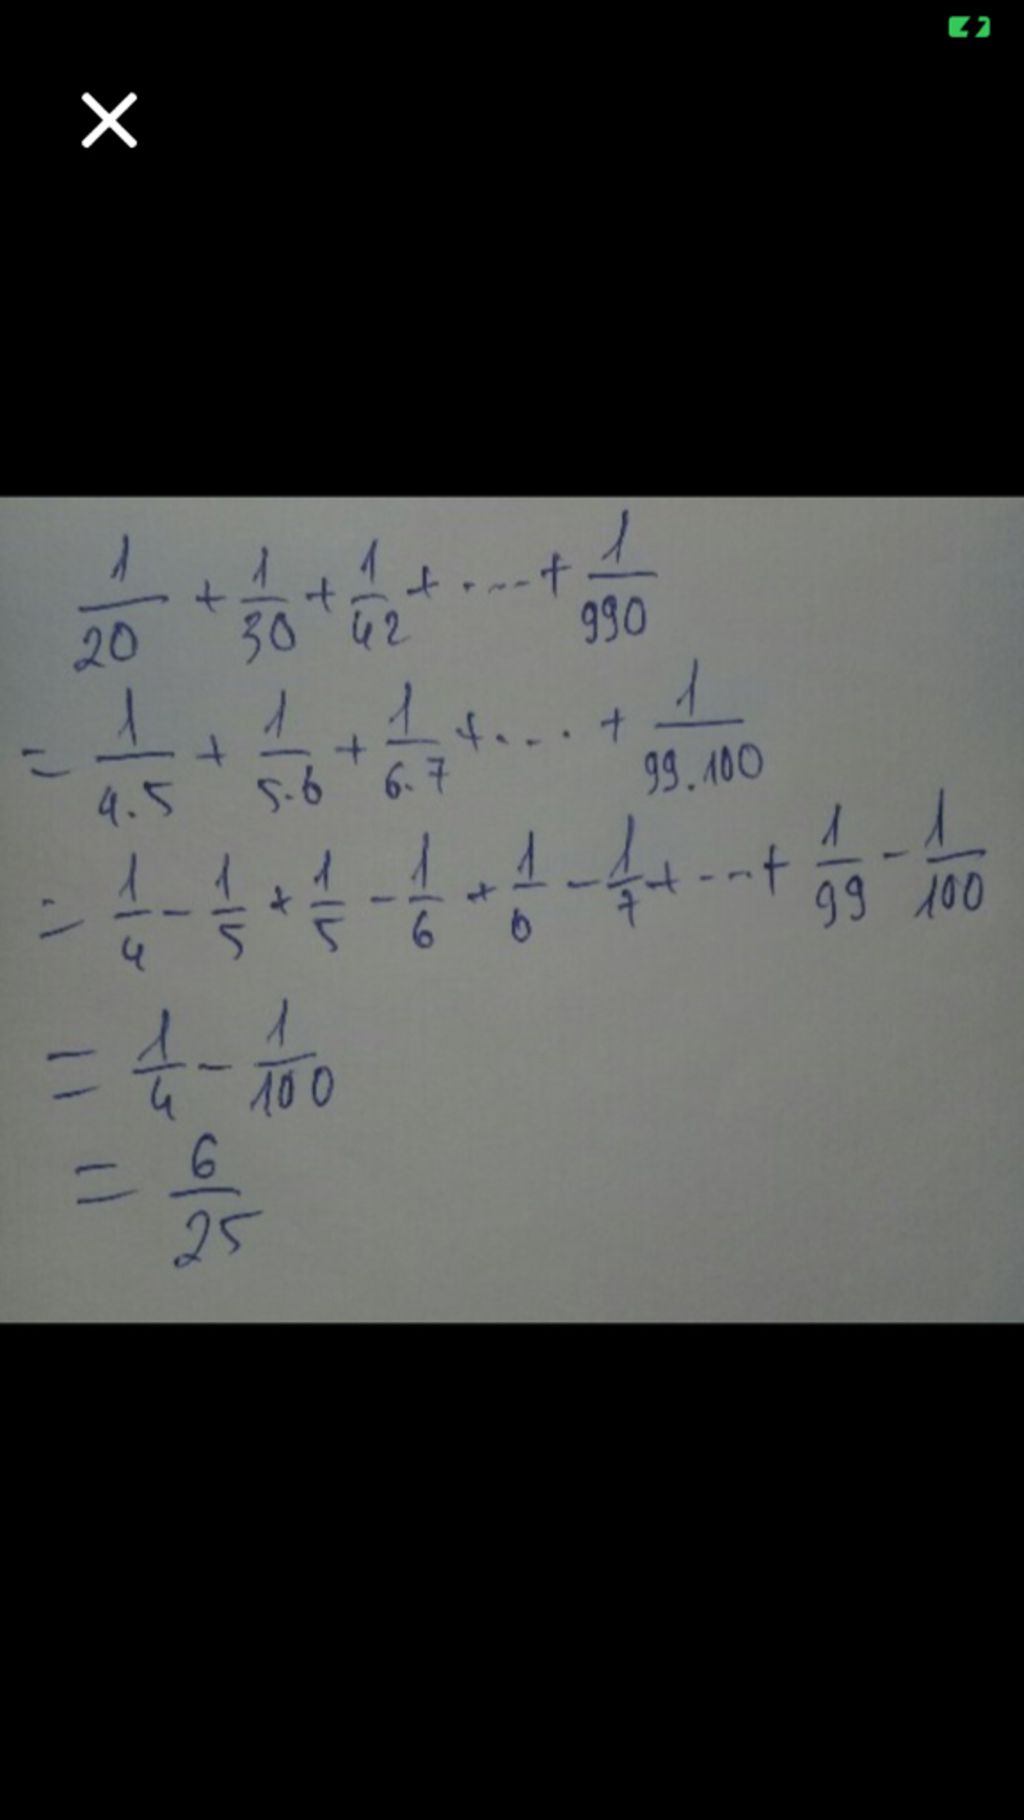 1/20 + 1/30 + 1/42 + .... + 1/990
= 1/4.5 + 1/5.6 + 1/6.7 + .... + 1/99.100
= 1/4 - 1/5 + 1/5 - 1/6 + 1/6 - 1/7 + ... + 1/99 - 1/100
= 1/4 - 1/100
= 6/25